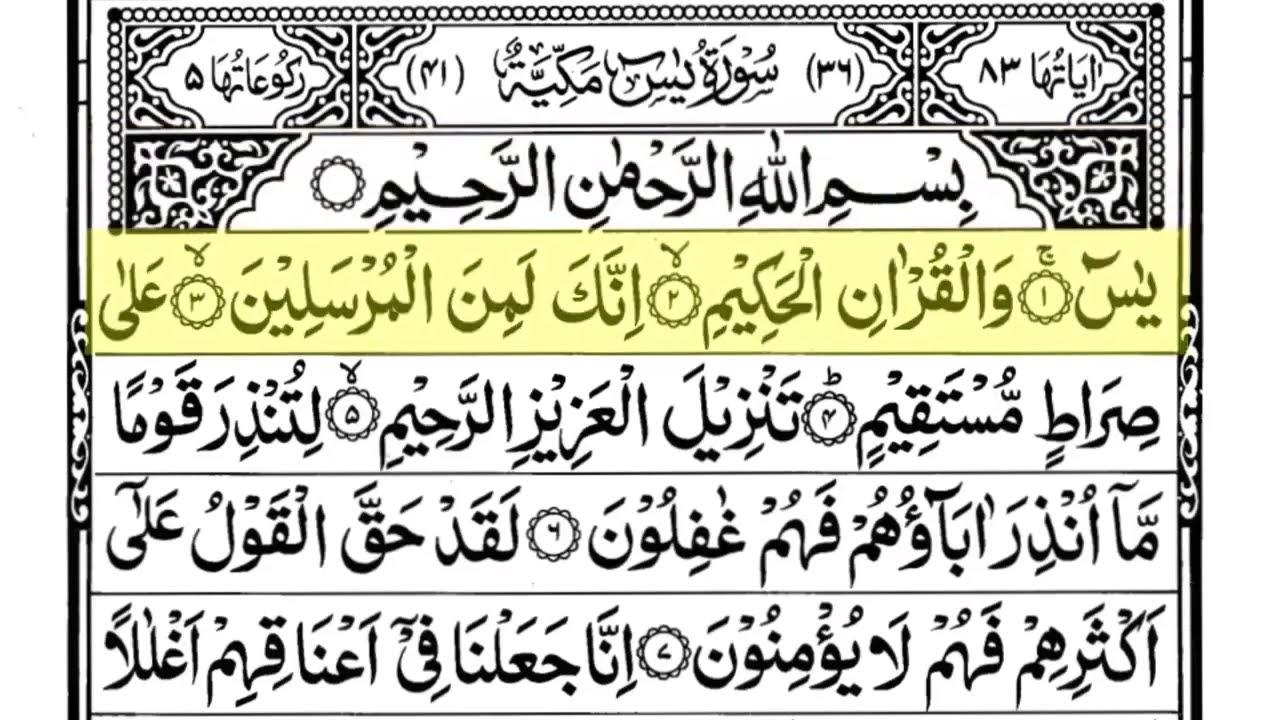 اٰيَاتُهَا ٨٣ (٣٦) سُوْرَةُ يٰسٓ مَكِّيَّةٌ (٤١) رُكُوْعَاتُهَا ٥
بِسْمِ اللّٰهِ الرَّحْمٰنِ الرَّحِيْمِ ۝
يٰسٓ ۚ‏﴿۱﴾ وَالْقُرْاٰنِ الْحَكِيْمِ ۙ‏﴿۲﴾ اِنَّكَ لَمِنَ الْمُرْسَلِيْنَ ۙ‏﴿۳﴾ عَلٰى
صِرَاطٍ مُّسْتَقِيْمٍ ؕ‏﴿۴﴾ تَنْزِيْلَ الْعَزِيْزِ الرَّحِيْمِ ۙ‏﴿۵﴾ لِتُنْذِرَ قَوْمًا
مَّاۤ اُنْذِرَ اٰبَآؤُهُمْ فَهُمْ غٰفِلُوْنَ ﴿۶﴾ لَقَدْ حَقَّ الْقَوْلُ عَلٰٓى
اَكْثَرِهِمْ فَهُمْ لَا يُؤْمِنُوْنَ ﴿۷﴾ اِنَّا جَعَلْنَا فِىْۤ اَعْنَاقِهِمْ اَغْلٰلًا